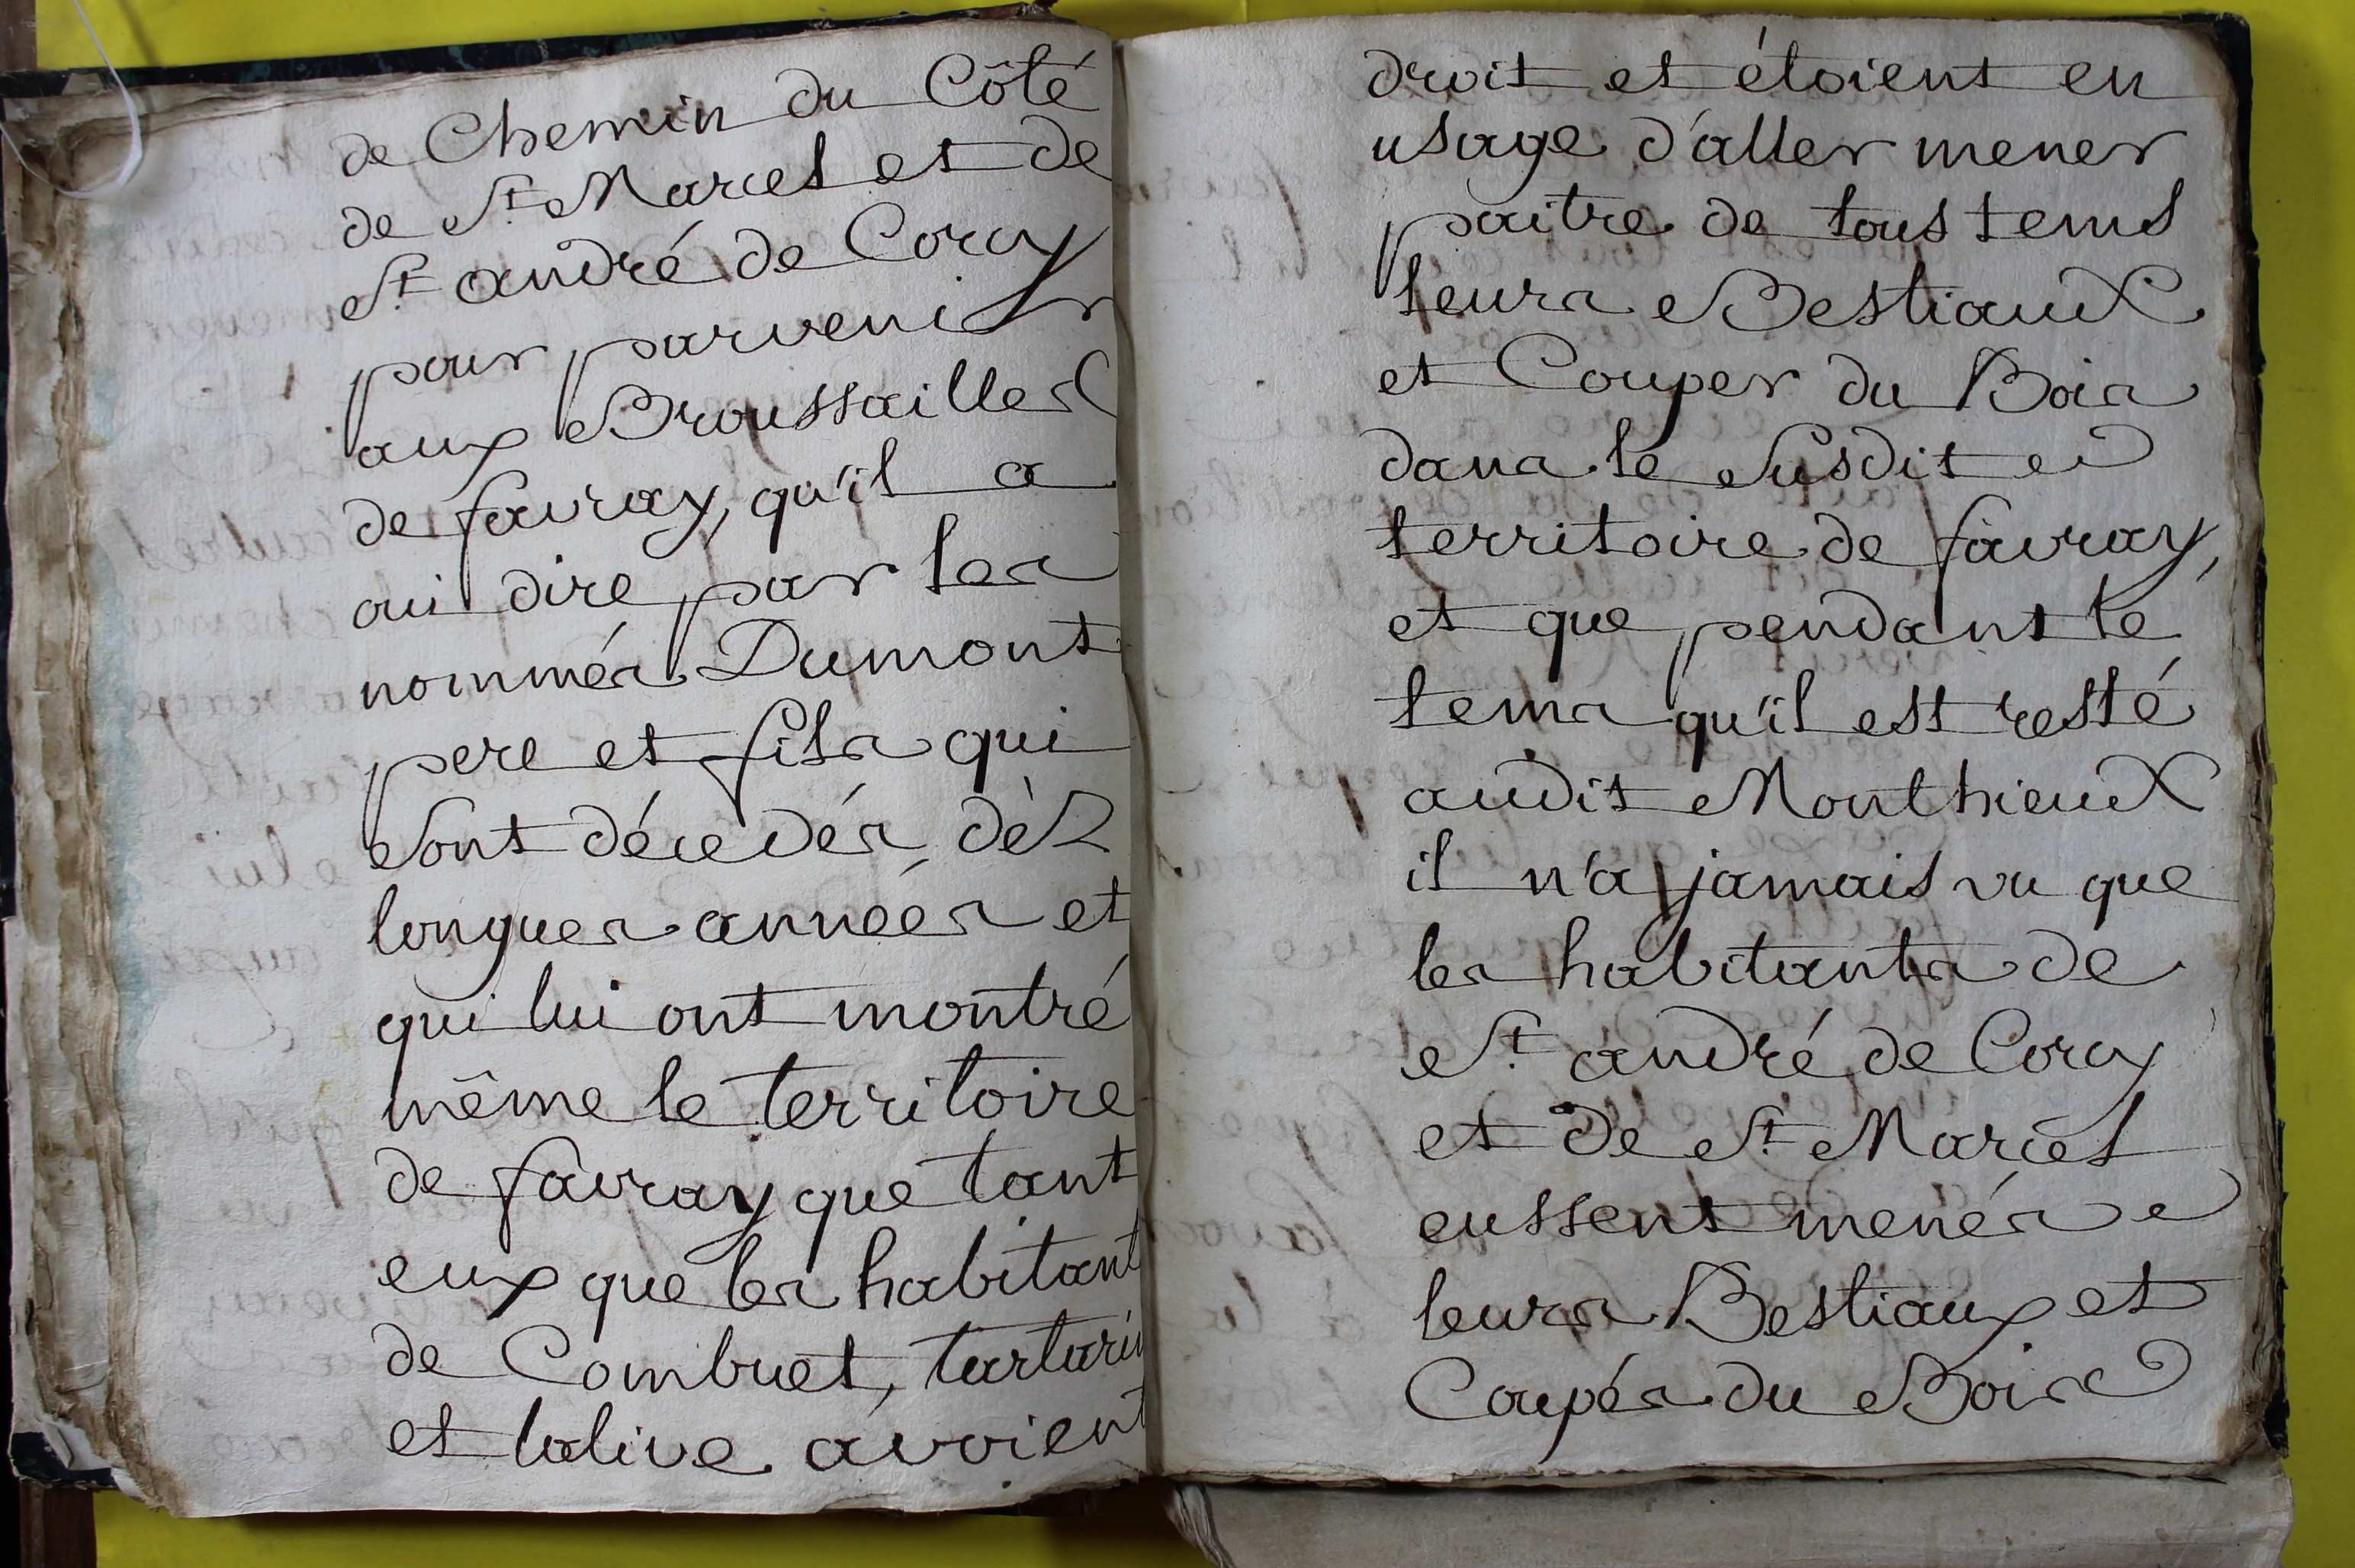 de Chemin du Côté
de St Marcel et de
St andré de Corcy
pour parvenir
aux Broussailles
de favray, qu'il a
oui dire par les
nommés Dumont
pere et fils qui
sont décedés, dès
longues années et
qui lui ont montré
même le territoire
de favray que tant
eux que les habitant
de Combuet, tartarin
et lolive avoient
droit et étoient en
usage d'aller mener
paitre de tous tems
leurs Bestiaux
et Couper du Bois
dans le susdit
territoire de favray,
et que pendant le
tems qu'il est resté
audit Monthieux
il n'a jamais vu que
les habitants de
St andré de Corcy
et de St Marcel
eussent menés
leurs Bestiaux et
Coupés du Bois